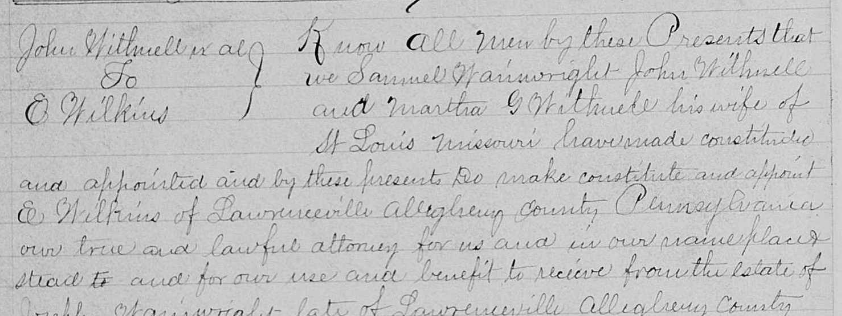 John Withnell et al
To
E Wilkins
Know all men by these Presents that
we Samuel Wainwright John Withnell
and Martha G Withnell his wife of
St Louis Missouri have made constituted
and appointed and by these presents Do make constitute and appoint
E Wilkins of Lawrenceville Allegheny County Pennsylvania
our true and lawful attorney for us and in our name place &
stead to and for our use and benefit to recieve from the estate of
Joseph Wainwright late of Lawrenceville Allegheny County